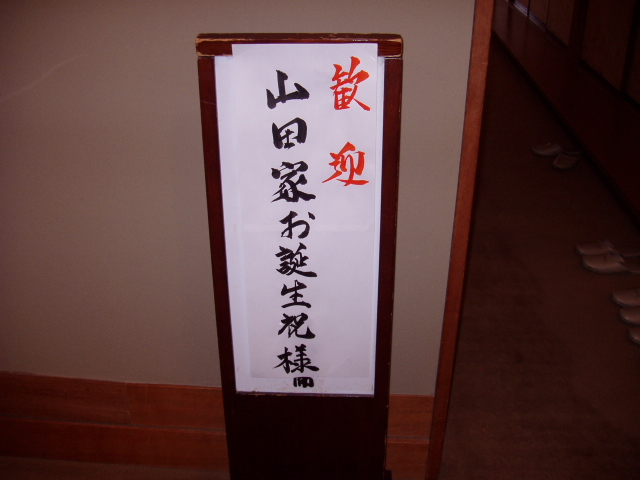 歓迎
山田家お誕生祝様